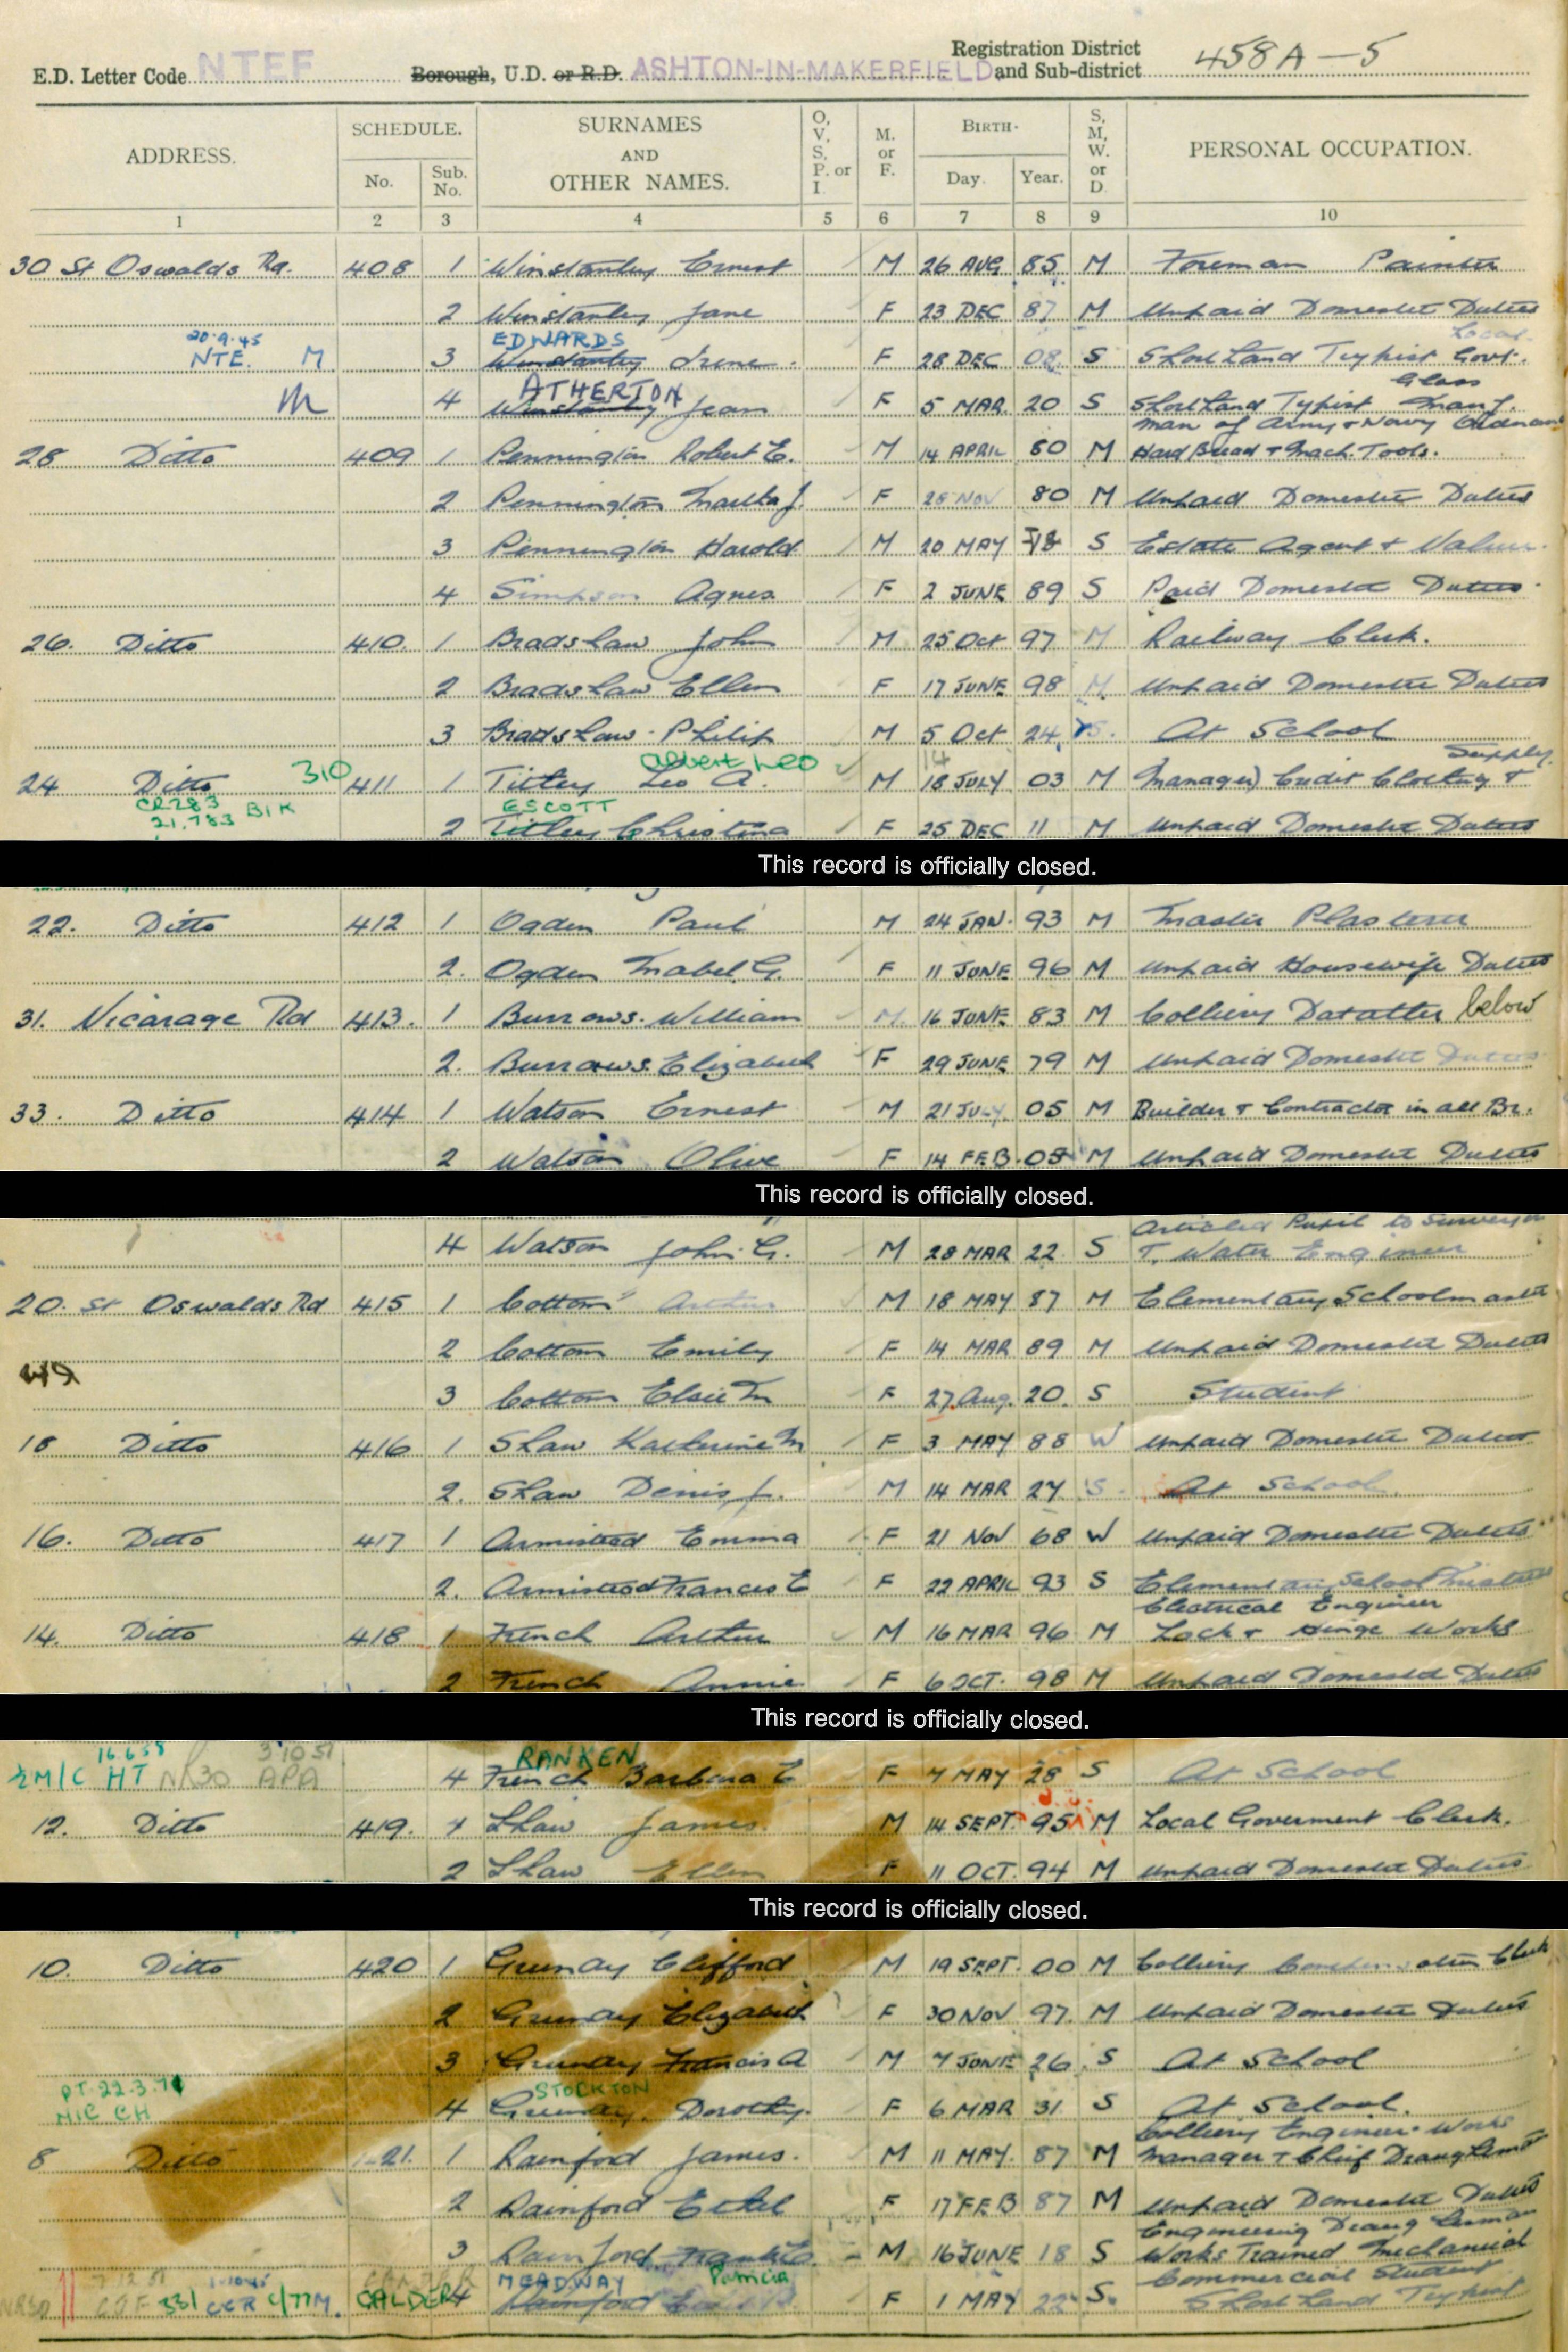 E.D. Letter Code NTEF Borough, U.D. or R.D. ASHTON-IN-MAKERFIELD Registration District and Sub-district 458A-5
ADDRESS. SCHEDULE. No. Sub. No. SURNAMES AND OTHER NAMES. O, V, S, P. or I. M. or F. BIRTH- Day. Year. S, M, W. or D. PERSONAL OCCUPATION.
1 2 3 4 5 6 7 8 9 10
30 St Oswalds Rd. 408 1 Winstanley Ernest M 26 AUG 85 M Foreman Painter
2 Winstanley Jane F 23 DEC 87 M Unpaid Domestic Duties
20.9.45 EDWARDS Local
NTE. M 3 Winstanley Irene F 28 DEC 08 S Shorthand Typist Govt.
ATHERTON Glass
M 4 Winstanley Jean F 5 MAR 20 S Shorthand Typist Manf.
Man of Army & Navy Ordnance
28 Ditto 409 1 Pennington Robert E. M 14 APRIL 80 M Hard Bread & Mach. Tools.
2 Pennington Martha J. F 28 NOV 80 M Unpaid Domestic Duties
3 Pennington Harold M 20 MAY 18 S Estate Agent & Valuer.
4 Simpson Agnes F 2 JUNE 89 S Paid Domestic Duties
26. Ditto 410. 1 Bradshaw John M 25 Oct 97 M Railway Clerk.
2 Bradshaw Ellen F 17 JUNE 98 M Unpaid Domestic Duties
3 Bradshaw Philip M 5 Oct 24 S. At School
310 Albert Leo 14 Supply
24 Ditto 411 1 Titley Leo A. M 18 JULY 03 M Manager) Credit Clothing &
CR283 21.783 BIK ESCOTT
2 Titley Christina F 25 DEC 11 M Unpaid Domestic Duties
This record is officially closed.
22. Ditto 412 1 Ogden Paul M 24 JAN. 93 M Master Plasterer
2. Ogden Mabel G. F 11 JUNE 96 M Unpaid Housewife Duties
31. Vicarage Rd 413. 1 Burrows. William M. 16 JUNE 83 M Colliery Dataller below
2. Burrows. Elizabeth F 29 JUNE 79 M Unpaid Domestic Duties
33. Ditto 414 1 Watson Ernest M 21 JULY 05 M Builder & Contractor in all Br.
2 Watson Olive F 14 FEB. 05 M Unpaid Domestic Duties
This record is officially closed.
Articled Pupil to Surveyor
4 Watson John. G. M 28 MAR 22 S & Water Engineer
20. St Oswalds Rd 415 1 Cottom Arthur M 18 MAY 87 M Elementary Schoolmaster
2 Cottom Emily F 14 MAR 89 M Unpaid Domestic Duties
3 Cottom Elsie M F 27 Aug. 20. S Student
18 Ditto 416 1 Shaw Katherine M F 3 MAY 88 W Unpaid Domestic Duties
2. Shaw Denis J. M 14 MAR 27 S At School
16. Ditto 417 1 Armistead Emma F 21 NOV 68 W Unpaid Domestic Duties
2. Armistead Frances E F 22 APRIL 93 S Elementary School Mistress
Electrical Engineer
14. Ditto 418 1 French Arthur M 16 MAR 96 M Lock & Hinge Works
2 French Annie F 6 OCT. 98 M Unpaid Domestic Duties
This record is officially closed.
16.6.58 3.10.51 RANKEN
M/C HT NR30 APA 4 French Barbara E F 7 MAY 28 S At School
12. Ditto 419. 1 Shaw James. M 14 SEPT. 95 M Local Goverment Clerk.
2 Shaw Ellen F 11 OCT. 94 M Unpaid Domestic Duties
This record is officially closed.
10. Ditto 420 1 Grundy Clifford M 19 SEPT. 00 M Colliery Compensation Clerk
2 Grundy Elizabeth F 30 NOV 97. M Unpaid Domestic Duties
3 Grundy Francis A M 7 JUNE 26. S At School
PT. 22.3.71 STOCKTON
HIC CH 4 Grundy. Dorothy. F 6 MAR 31 S At School.
Colliery Engineer. Works
8 Ditto 421. 1 Rainford James. M 11 MAY. 87 M Manager & Chief Draughtsman
2 Rainford Ethel F 17 FEB 87 M Unpaid Domestic Duties
Engineering Draughtsman
3 Rainford Frank E. M 16 JUNE 18 S Works Trained Mechanical
MEADWAY Patricia Commercial Student
NR30 331 CCR C/77M. CALDER 4 Rainford F 1 MAY 22 S. Shorthand Typist